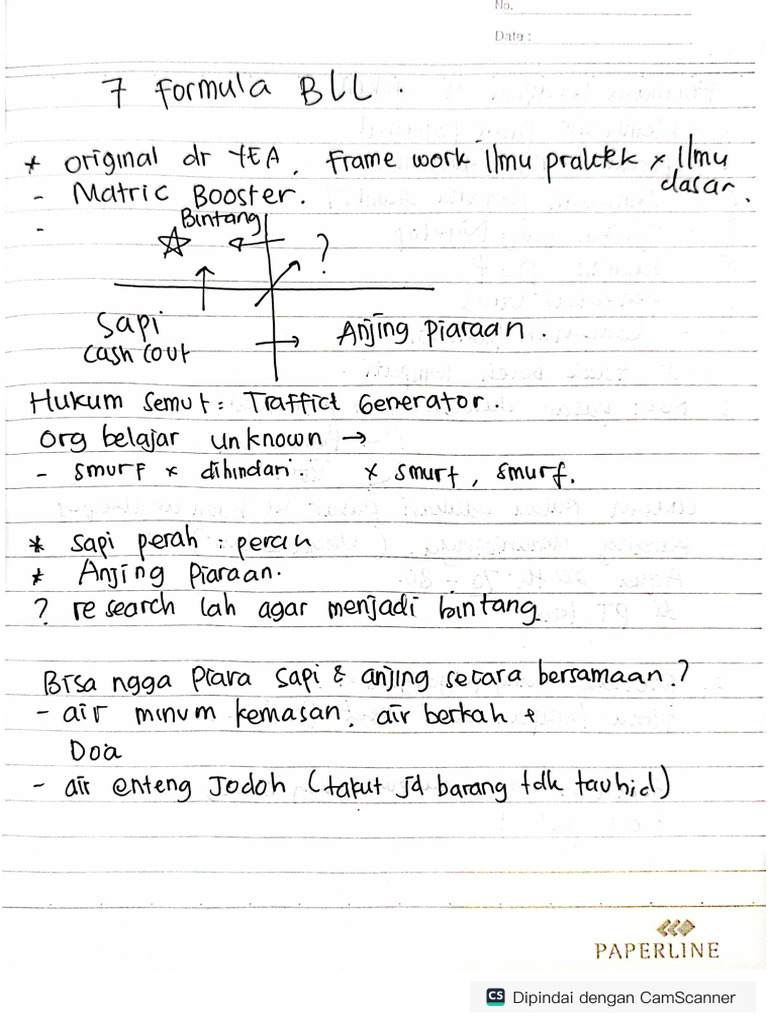 No.
Date :
7 Formula BLL.
* original dr YEA, Frame work ilmu praktek x ilmu
dasar.
- Matric Booster.
- Bintang
?
Sapi
cash cout
Anjing Piaraan.
Hukum Semut: Traffict Generator.
Org belajar unknown →
- smurf x dihindari. x smurf, smurf.
* Sapi perah : peran
* Anjing Piaraan.
? research lah agar menjadi bintang
Bisa ngga Piara Sapi & anjing secara bersamaan.?
- air minum kemasan, air berkah +
Doa
- air enteng Jodoh (takut jd barang tdk tauhid)
PAPERLINE
CS Dipindai dengan CamScanner